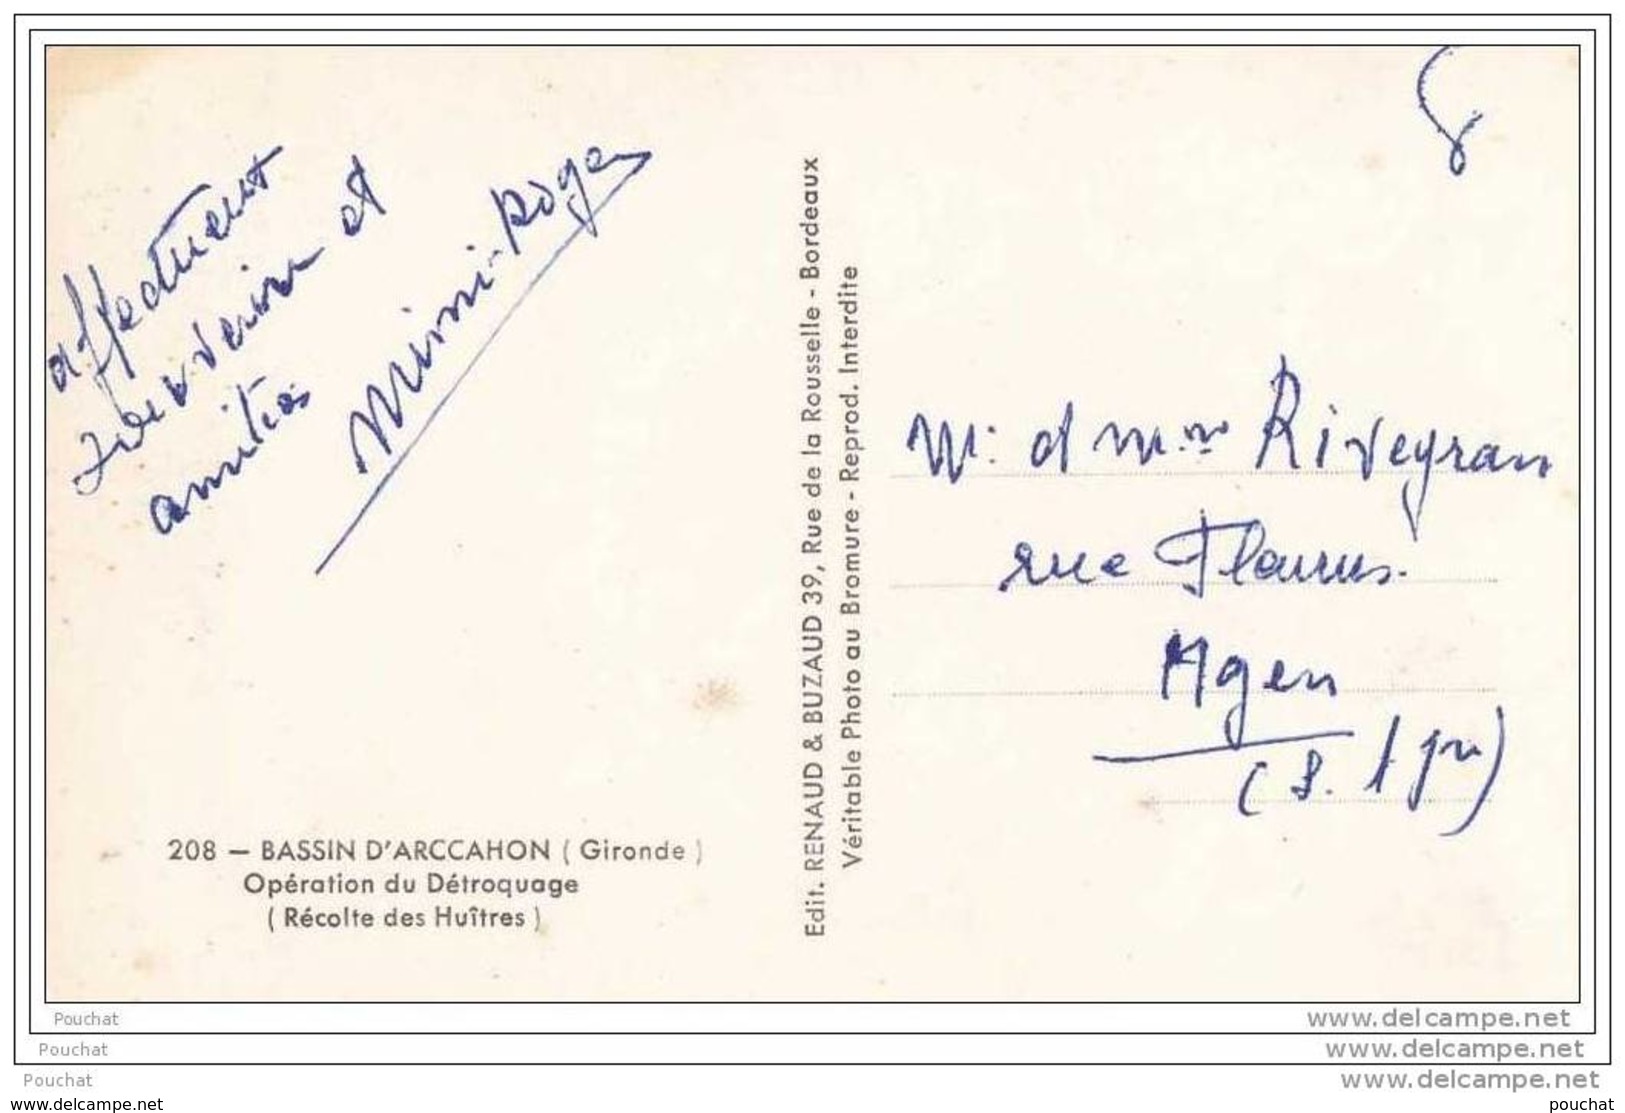 affectueux
souvenir et
amitiés
Mimi-Roger
208 — BASSIN D'ARCCAHON ( Gironde )
Opération du Détroquage
( Récolte des Huîtres )
Edit. RENAUD & BUZAUD 39, Rue de la Rousselle - Bordeaux
Véritable Photo au Bromure - Reprod. Interdite
8
M. et Mme Riveyran
rue Fleurus.
Agen
(L. & G.)
Pouchat
www.delcampe.net
Pouchat
www.delcampe.net
Pouchat
www.delcampe.net
www.delcampe.net
pouchat